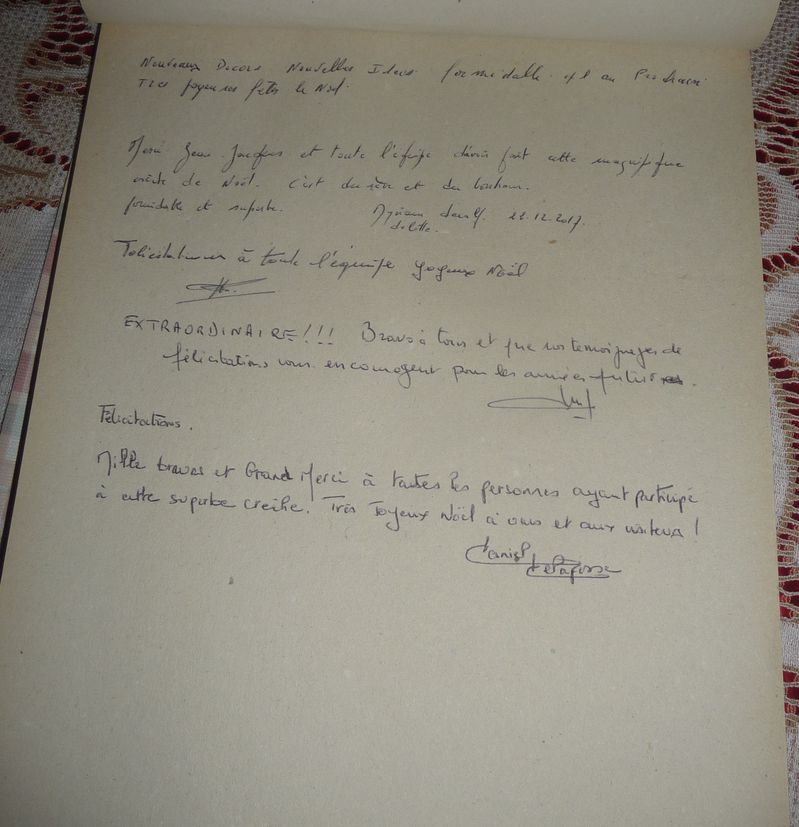 Nouveaux Decors Nouvelles Idees formidable et au Prochain
Tres joyeuses fêtes de Noël
Merci Jean Jacques et toute l'équipe d'avoir fait cette magnifique
crèche de Noël. C'est du rêve et du bonheur.
formidable et superbe. 22.12.2017.
Félicitations à toute l'équipe Joyeux Noël
EXTRAORDINAIRE!!! Bravo à tous et que nos temoignages de
félicitations vous encouragent pour les années futures.
Félicitations.
Mille bravos et Grand Merci à toutes les personnes ayant participé
à cette superbe creche. Très Joyeux Noël à vous et aux visiteurs!